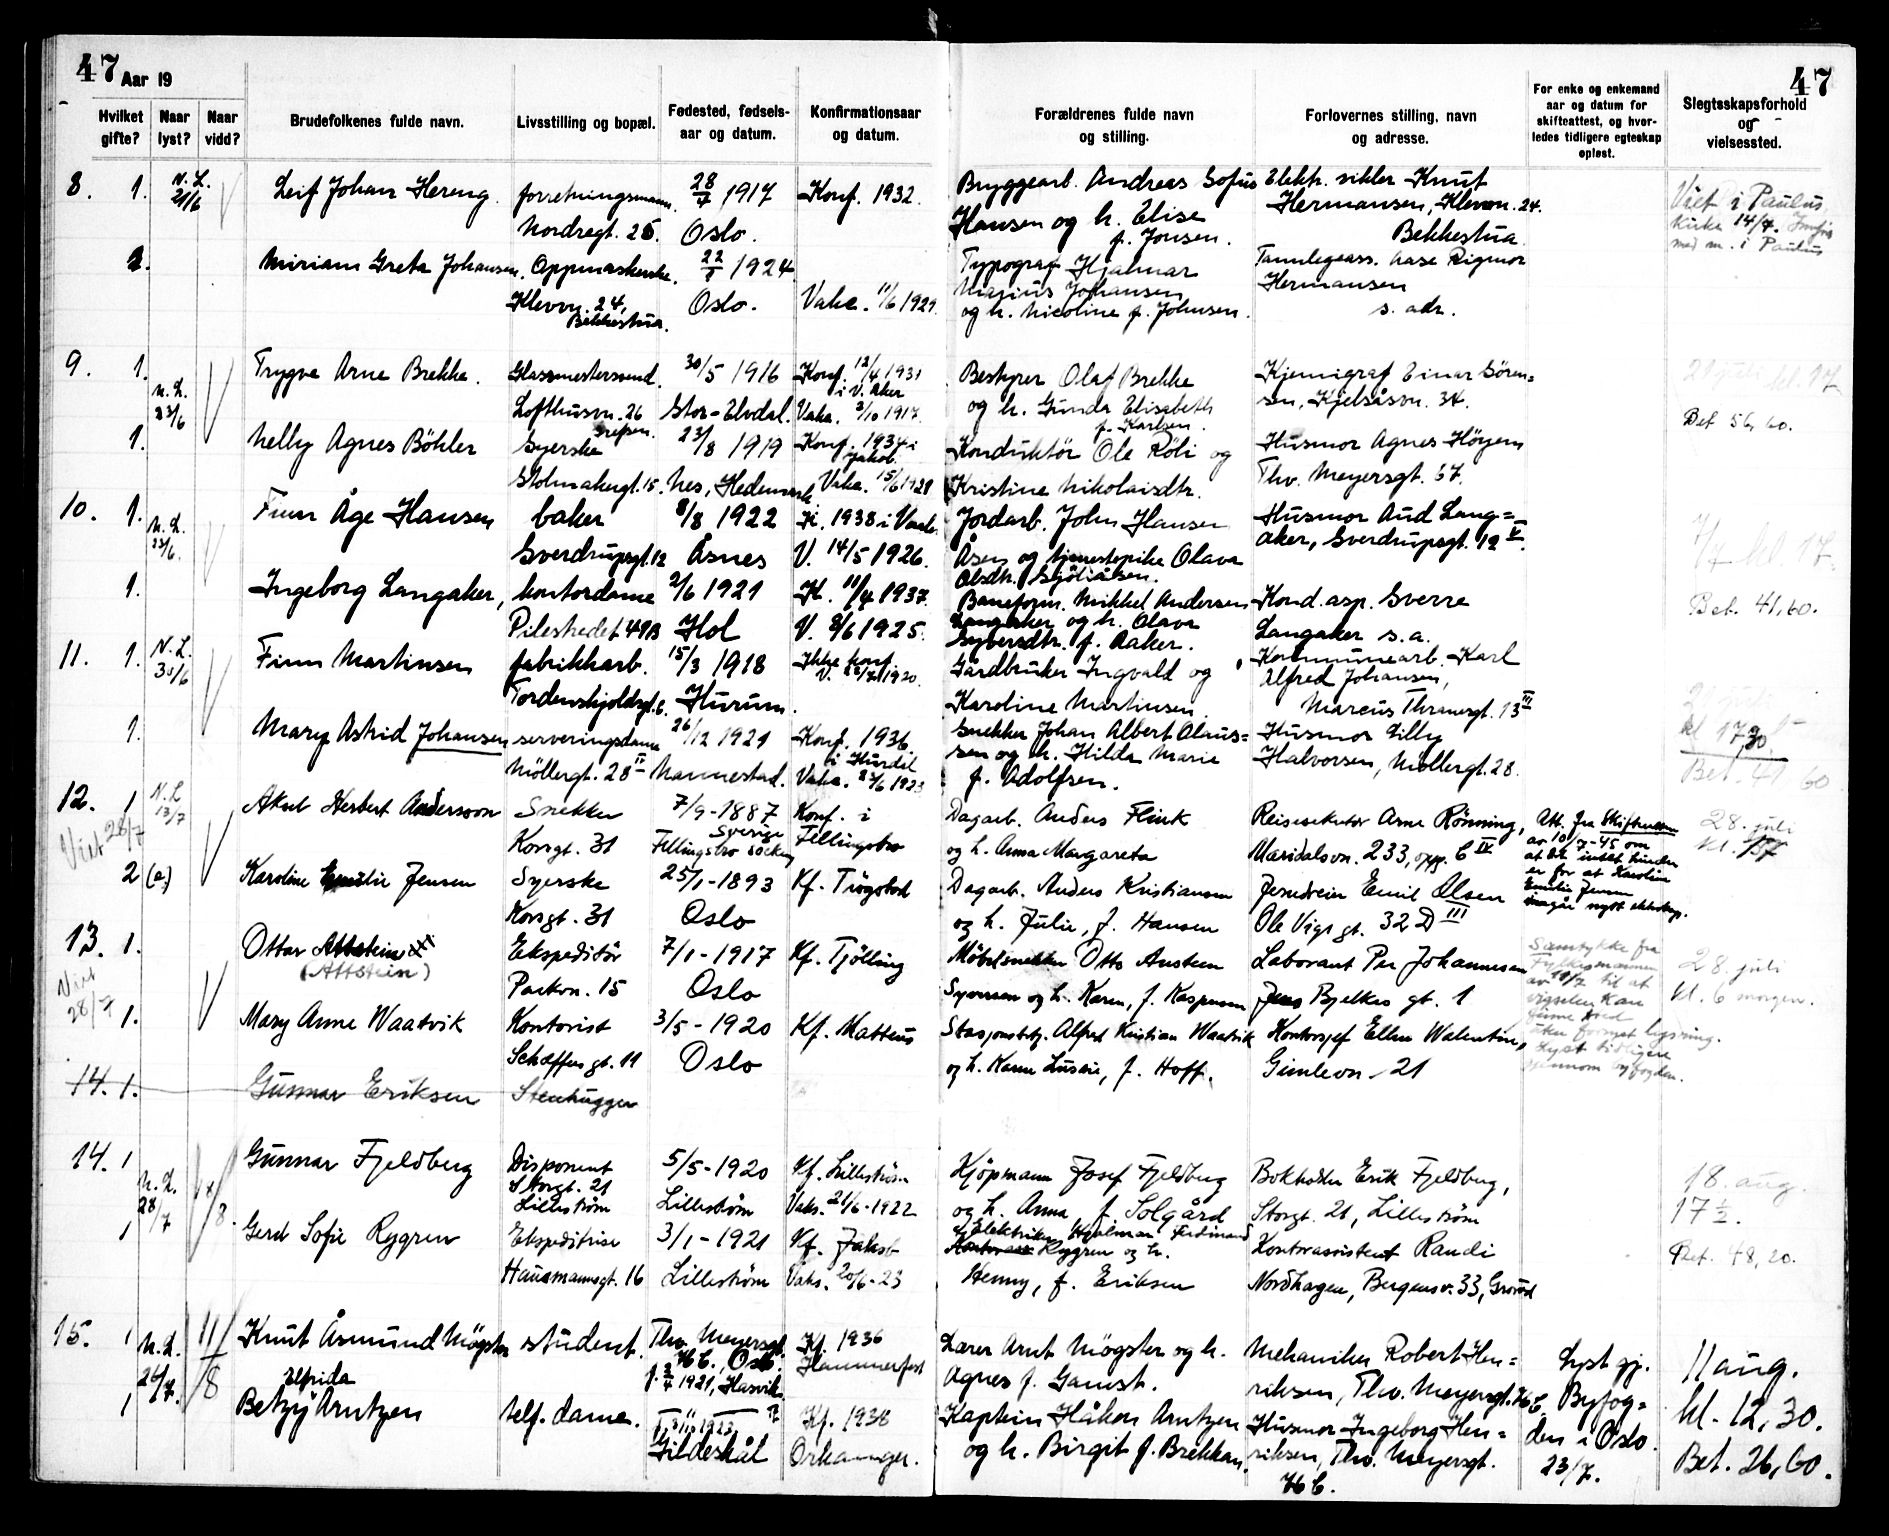 47 Aar 19
47
Hvilket gifte?
Naar lyst?
Naar vidd?
Brudefolkenes fulde navn.
Livsstilling og bopæl.
Fødested, fødsels-aar og datum.
Konfirmationsaar og datum.
Forældrenes fulde navn og stilling.
Forlovernes stilling, navn og adresse.
For enke og enkemand aar og datum for skifteattest, og hvorledes tidligere egteskap opløst.
Slegtsskapsforhold og vielsessted.
8. 1. N.L. 21/6 Leif Johan Hereng. forretningsmann. 28/7 1917 Konf. 1932. Bryggearb. Andreas Sofus Elektr. sikler Knut Viet i Paulus
Nordregt. 26. Oslo. Hansen og h. Elise Hermansen, Klevvn. 24. Kirke 14/7.
f. Jonsen. Bekkestua. med m. i Paulus
Miriam Greta Johansen. 22/8 1924. Typograf Hjalmar Tannlegeass. Aase Rigmor
Klevvn. 24, Oslo. Vaks. 11/6 1929. Marius Johansen Hermansen
Bekkestua. og h. Nicoline f. Johnsen. s. adr.
9. 1. N.L. 23/6 Trygve Arne Brekke. Glassmestersvend. 30/5 1916 Konf. 12/4 1931 i V. Aker Bestyrer Olaf Brekke Kjemigraf Einar Sören=
Lofthusvn. 26 Stor-Elvdal. Vaks. 3/10 1917. og h. Gunda Elisabeth sen, Kjelsåsvn. 34. Bet 56,60.
Grefsen. f. Karlsen.
1. Nelly Agnes Böhler Syerske 23/8 1919 Konf. 1934 i Jakob. Konduktör Ole Röli og Husmor Agnes Höyem
Stolmakergt. 15. Nes, Hedemark Vaks. 15/6 1928 Kristine Nikolaisdtr. Thv. Meyersgt. 67.
10. 1. N.L. 23/6. Finn Åge Hansen baker 8/8 1922 K. 1938 i Vaaler Jordarb. John Hansen Husmor Aud Lang=
Sverdrupsgt. 12 Åsnes V. 14/5 1926. Åsen og tjenestepike Olava aker, Sverdrupsgt. 12 V. 7/7 kl. 17.
Olsdtr. Sjöliåsen.
1. Ingeborg Langaker, kontordame 2/6 1921 K. 11/4 1937. Baneform. Mikkel Andersen Kond. asp. Sverre Bet. 41,60.
Pilestredet 49B Hol V. 8/6 1925. Langaker og h. Olava Langaker s. a.
Syversdtr. f. Aaker.
11. 1. N.L. 30/6 Finn Martinsen fabrikkarb. 15/3 1918 Ikke konf. Gårdbruker Ingvald og Kommunearb. Karl
Tordenskjoldsgt. 6. Hurum. V. 28/7 1920. Karoline Martinsen. Alfred Johansen,
Marcus Thranesgt. 13 III
1. Mary Astrid Johansen serveringsdame 26/12 1921 Konf. 1936. i Hurdal Snekker Johan Albert Olaus= Husmor Lilly kl 17,30.
Möllergt. 28 II Nannestad. Vaks. 23/6 1923 sen og h. Hilda Marie Halvorsen, Möllergt. 28. Bet. 41,60
f. Adolfsen.
12. 1 N.L. 13/7 Aksel Herbert Andersson Snekker 7/9-1887 Konf. i Dagarb. Anders Flink Reisesekretær Arne Rönning, Att. fra Skifteretten 28. juli
Viet 28/7 Korsgt. 31 Sverige Fellingsbro socken Fellingsbro og h. Anna Margareta Maridalsvn. 233, opp. C IV av 10/7-45 om
at det intet hinder
er for at Karoline
Emilie Jensen
inngår nytt ekteskap.
2 (e.) Karoline Emilie Jensen Syerske 25/1-1893 Kf. Trögstad Dagarb. Anders Kristiansen Emil Olsen
Korsgt. 31 Oslo og h. Julie, f. Hansen Ole Vigs gt. 32 D III
13. 1. Ottar Attstein Ekspeditör 7/1-1917 Kf. Tjölling Möbelsnekker Otto Austeen Laborant Per Johannesen Samtykke fra 28. juli
Viet 28/7 (Attstein) Parkvn. 15 Oslo Syversen og h. Karen, f. Kaspersen Jens Bjelkes gt. 1 Fylkesmannen kl. 6 morgen.
av 19/7 til at
vigselen kan
finne sted
uten fornyet lysning.
Lyst tidligere
gjennom byfogden.
1. Mary Anne Waatvik Kontorist 3/5-1920 Kf. Matteus Stasjonsbtj. Alfred Kristian Waatvik Kontorsjef Ellen Walentin,
Schæffers gt. 11 Oslo og h. Karen Lusie, f. Hoff. Gimlevn. 21
14. 1. Gunnar Eriksen Stenhugger
14. 1 N.L. 28/7 Gunnar Fjeldberg Disponent 5/5-1920 Kf. Lilleström Kjöpmann Josef Fjeldberg Bokholder Erik Fjeldberg, 18. aug.
Storgt. 21 Lilleström Lilleström Vaks. 21/6-1922 og h. Anna, f. Solgård Storgt. 21, Lilleström 17 1/2.
1 Gerd Sofie Rygren Ekspeditrise 3/1-1921 Kf. Jakob Elektriker Hjalmar Ferdinand Rygren og h. Kontorassistent Randi Bet. 48,20.
Hausmannsgt. 16 Lilleström Vaks. 20/6-23 Henny, f. Eriksen Nordhagen, Bergensv. 33, Grorud
15. 1 N.L. 26/7. 11/8 Knut Åsmund Mögster student. Thv. Meyersgt. 76 C., Oslo. Kf. 1936 Lærer Arnt Mögster og h. Mekaniker Robert Hen= Lyst gj. 11 aug.
f. 2/4 1921, Hasvik. Hammerfest Agnes f. Gamst. riksen, Thv. Meyersgt. 76 C Byfog= kl. 12,30.
1 Elfrida Betzy Arntzen telf. dame. Gildeskål Kf. 1938 Orkanger. Kaptein Håkon Arntzen Husmor Ingeborg Hen= den i Oslo. Bet. 26,60.
og h. Birgit f. Brekkan. riksen, Thv. Meyersgt. 23/7.
76 C.